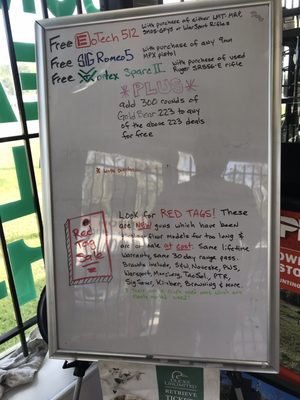 Free EOTech 512 with purchase of either LWT MRP,
SCAR-SPHS or WarSport Rifles
Free SIG Romeo5 with purchase of any 9mm
MPX pistol
Free Vortex Spare II with purchase of used
Ruger SR556-E rifle
*PLUS*
add 300 rounds of
Gold Bear 223 to any
of the above 223 deals
for free
Red
Tag
Sale
Look for RED TAGS! These
are NEW guns which have been
our floor models for too long &
are on sale at cost. Same lifetime
warranty, same 30 day range pass.
Brands include, S&W, Noveske, PWS,
Warsport, MacTac, PTR,
Sig Sauer, Kimber, Browning & more.
DUCKS
UNLIMITED
RETRIEVE
TICKETS